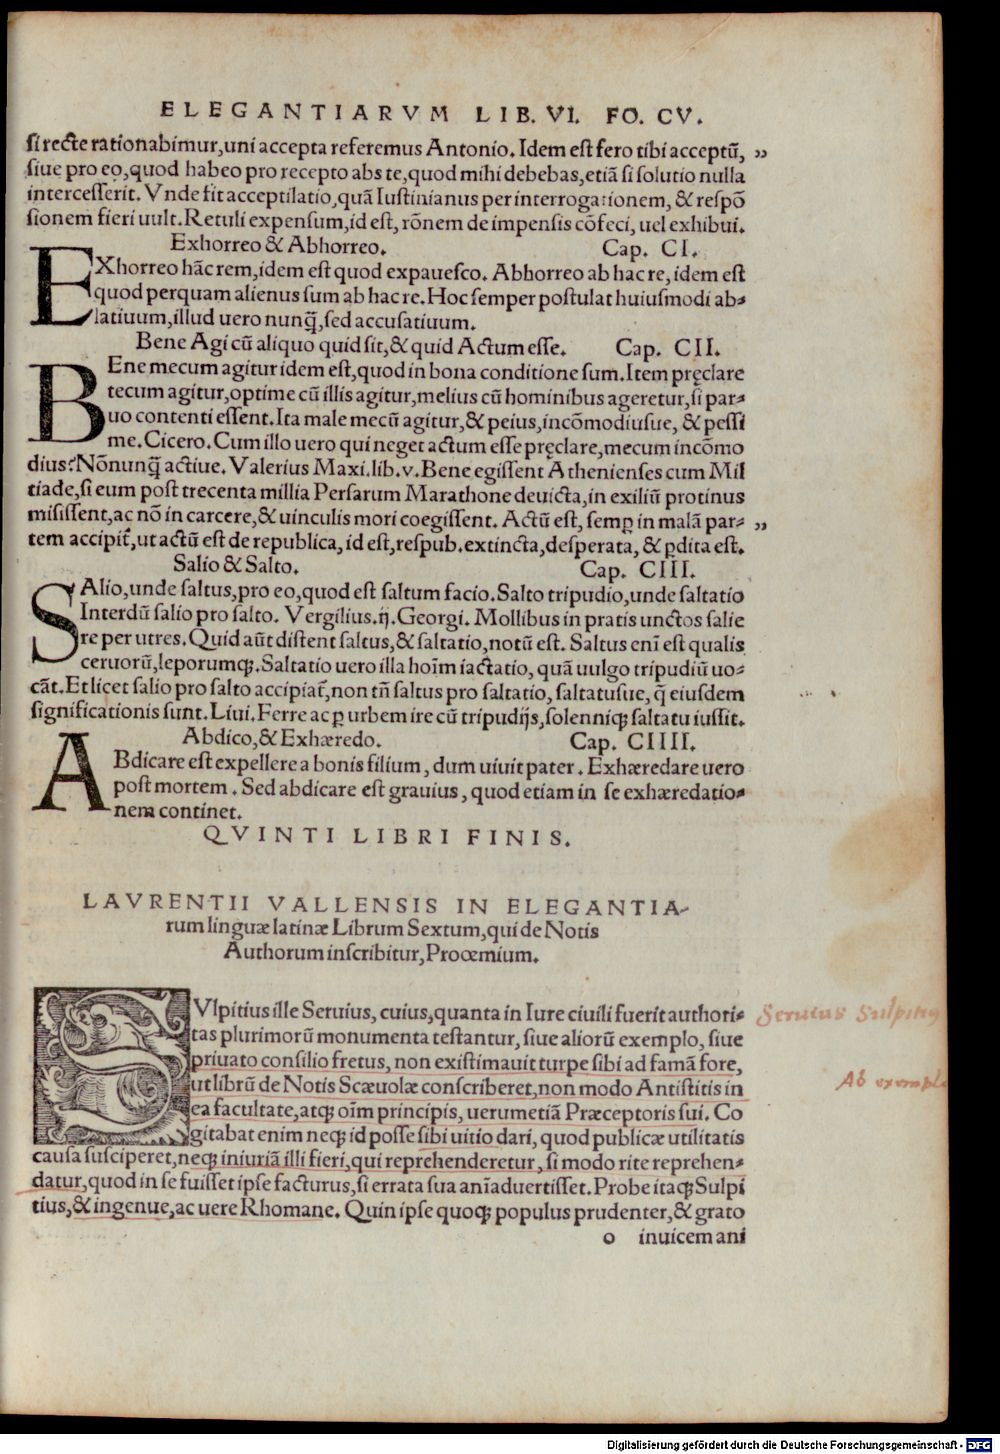 ELEGANTIARVM LIB. VI. FO. CV.
si recte rationabimur,uni accepta referemus Antonio. Idem est fero tibi acceptū, ,,
siue pro eo,quod habeo pro recepto abs te,quod mihi debebas,etiā si solutio nulla
intercesserit. Vnde fit acceptilatio,quā Iustinianus per interrogationem, & respō
sionem fieri uult. Retuli expensum,id est, rōnem de impensis cōfeci, uel exhibui.
Exhorreo & Abhorreo. Cap. CI.
EXhorreo hāc rem,idem est quod expauesco. Abhorreo ab hac re, idem est
quod perquam alienus sum ab hac re. Hoc semper postulat huiusmodi ab-
latiuum,illud uero nunq̄, sed accusatiuum.
Bene Agi cū aliquo quid sit,& quid Actum esse. Cap. CII.
BEne mecum agitur idem est,quod in bona conditione sum. Item pręclare
tecum agitur,optime cū illis agitur,melius cū hominibus ageretur,si par-
uo contenti essent. Ita male mecū agitur,& peius,incōmodiusue, & pessi
me. Cicero. Cum illo uero qui neget actum esse pręclare,mecum incōmo
dius? Nōnunq̄ actiue. Valerius Maxi.lib.v. Bene egissent Athenienses cum Mil
tiade,si eum post trecenta millia Persarum Marathone deuicta,in exiliū protinus
misissent,ac nō in carcere,& uinculis mori coegissent. Actū est, semꝑ in malā par- ,,
tem accipit̄,ut actū est de republica, id est,respub.extincta,desperata, & ꝑdita est.
Salio & Salto. Cap. CIII.
SAlio,unde saltus,pro eo,quod est saltum facio. Salto tripudio,unde saltatio
Interdū salio pro salto. Vergilius.ij. Georgi. Mollibus in pratis unctos salie
re per utres. Quid aūt distent saltus,& saltatio,notū est. Saltus enī est qualis
ceruorū,leporumq;. Saltatio uero illa hoīm iactatio, quā uulgo tripudiū uo-
cāt. Et licet salio pro salto accipiat̄,non tn̄ saltus pro saltatio, saltatusue, q̄ eiusdem
significationis sunt. Liui. Ferre ac ꝑ urbem ire cū tripudijs,solenniq; saltatu iussit.
Abdico,& Exhæredo. Cap. CIIII.
ABdicare est expellere a bonis filium, dum uiuit pater. Exhæredare uero
post mortem. Sed abdicare est grauius, quod etiam in se exhæredatio-
nem continet.
QVINTI LIBRI FINIS.
LAVRENTII VALLENSIS IN ELEGANTIA-
rum linguæ latinæ Librum Sextum,qui de Notis
Authorum inscribitur, Prooemium.
SVlpitius ille Seruius, cuius,quanta in Iure ciuili fuerit authori- Seruius Sulpitius
tas plurimorū monumenta testantur, siue aliorū exemplo, siue
priuato consilio fretus, non existimauit turpe sibi ad famā fore,
ut librū de Notis Scæuolæ conscriberet,non modo Antistitis in Ab exemplo
ea facultate,atq; oīm principis, uerumetiā Præceptoris sui. Co
gitabat enim neq; id posse sibi uitio dari, quod publicæ utilitatis
causa susciperet,neq; iniuriā illi fieri,qui reprehenderetur, si modo rite reprehen-
datur,quod in se fuisset ipse facturus,si errata sua anīaduertisset. Probe itaq; Sulpi
tius,& ingenue,ac uere Rhomane. Quin ipse quoq; populus prudenter,& grato
o inuicem ani
Digitalisierung gefördert durch die Deutsche Forschungsgemeinschaft - DFG